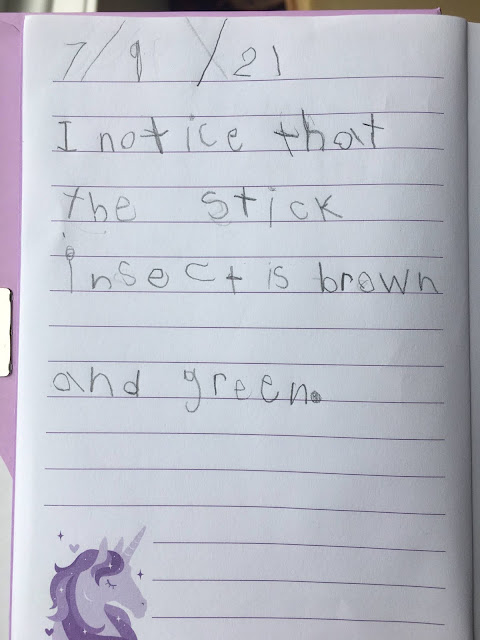 7/9/21
I notice that
the stick
insect is brown
and green.